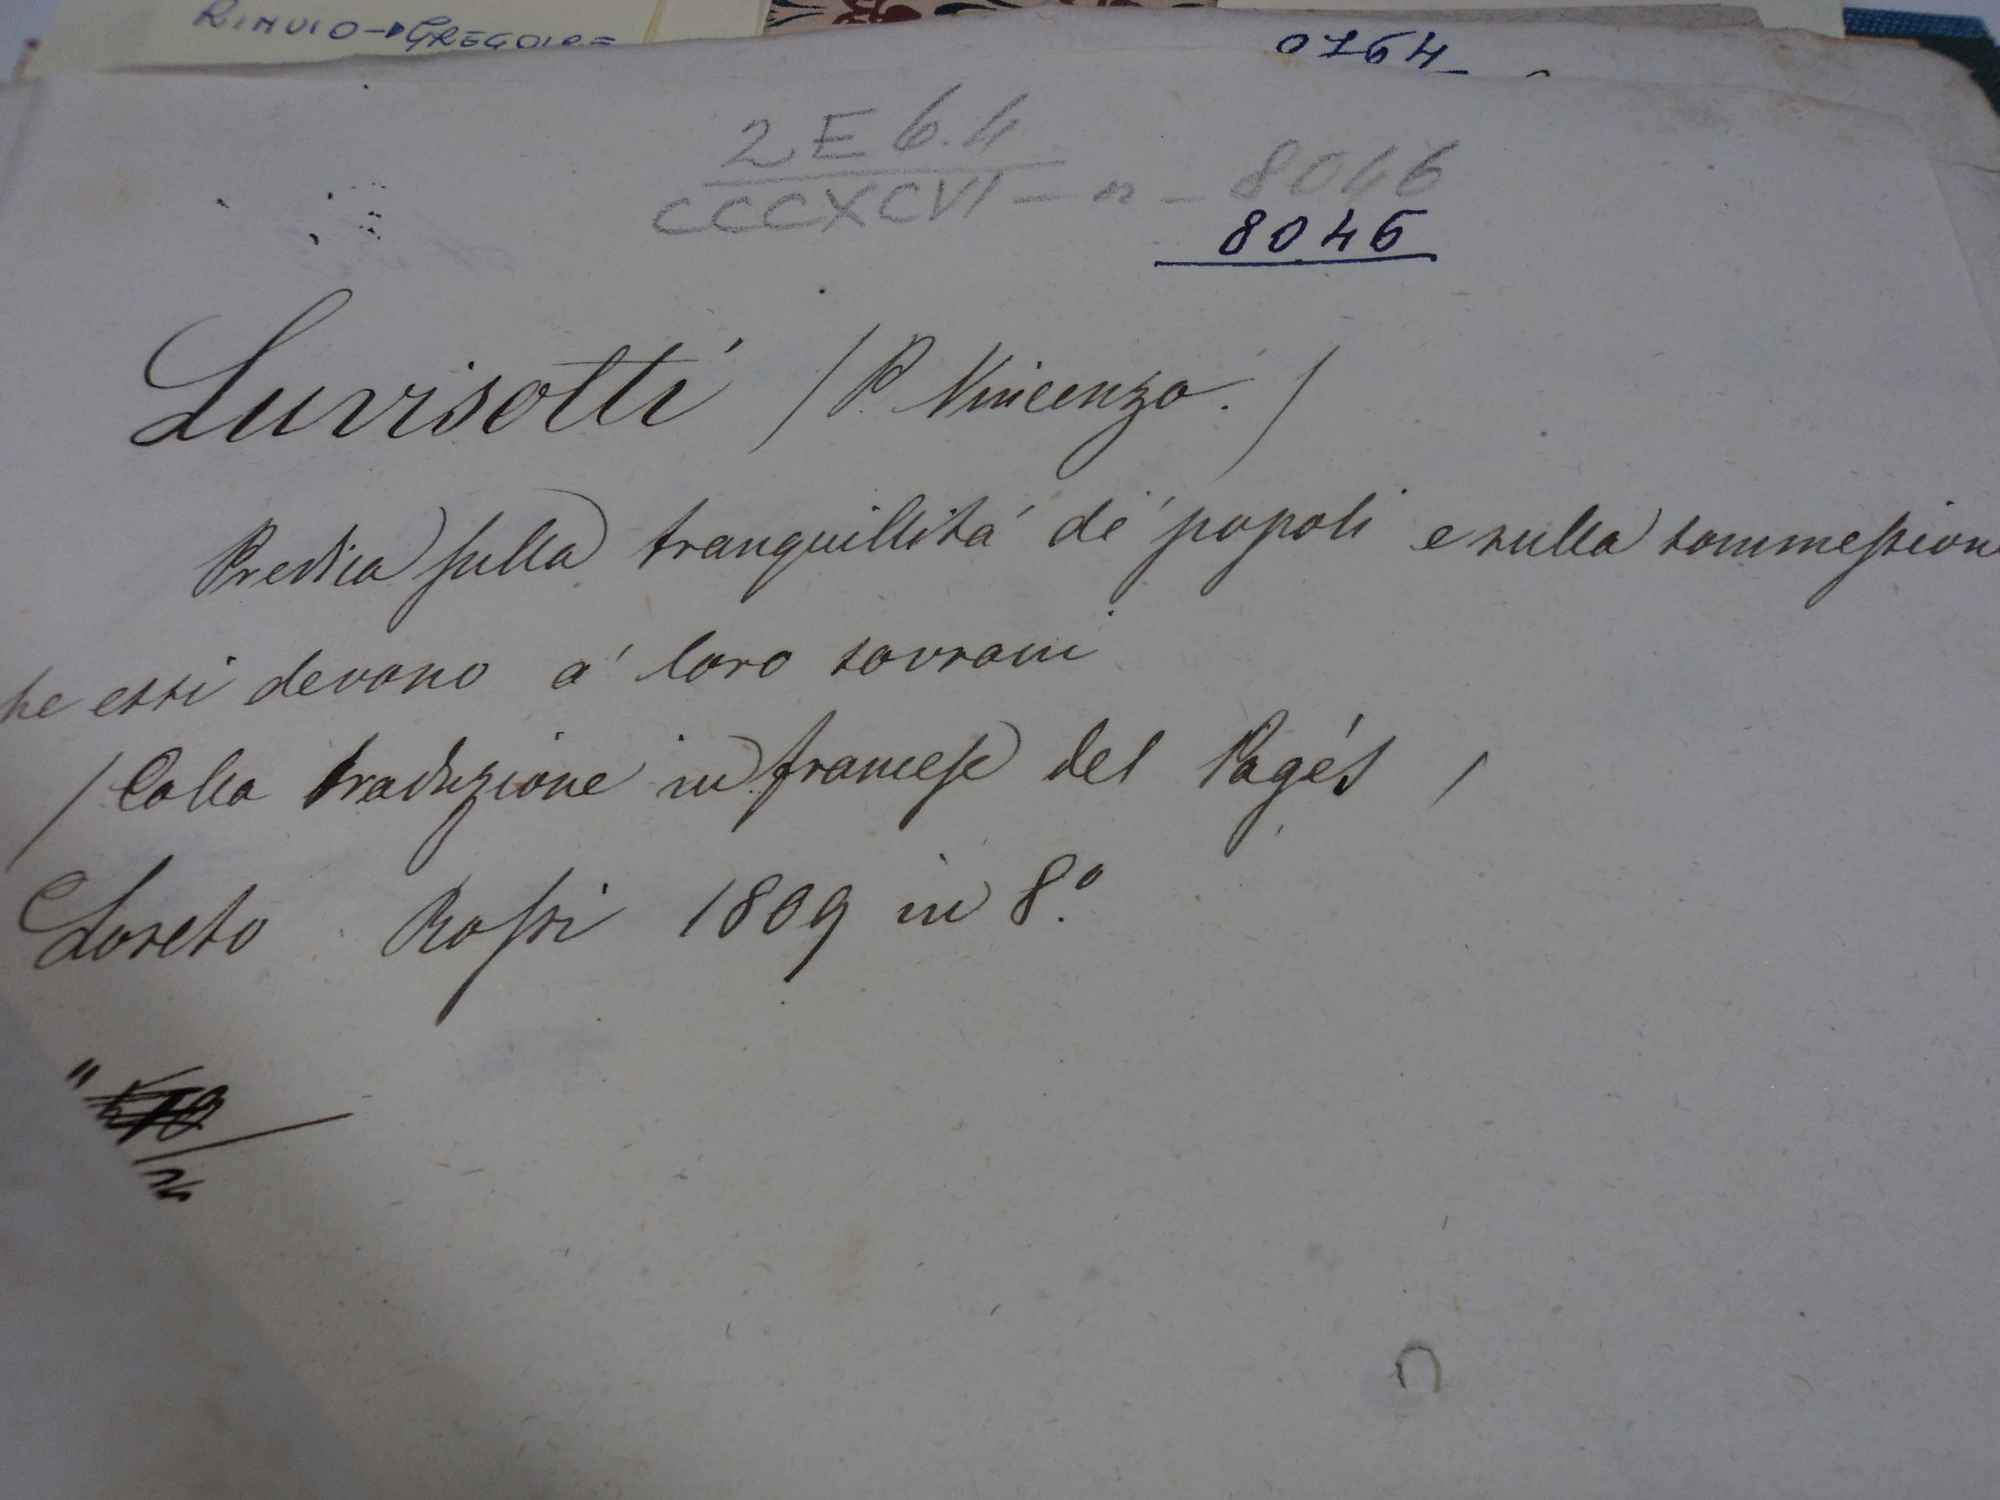 RINVIO → GREGOIRE
0764
2 E 6.4
CCCXCVI - n - 8046
8046
Luvisotti (P. Vincenzo.)
Predica sulla tranquillitá de' popoli e sulla sommession
he essi devono a' loro sovrani
(Colla traduzione in francese del Pagés)
Loreto Rossi 1809 in 8.º